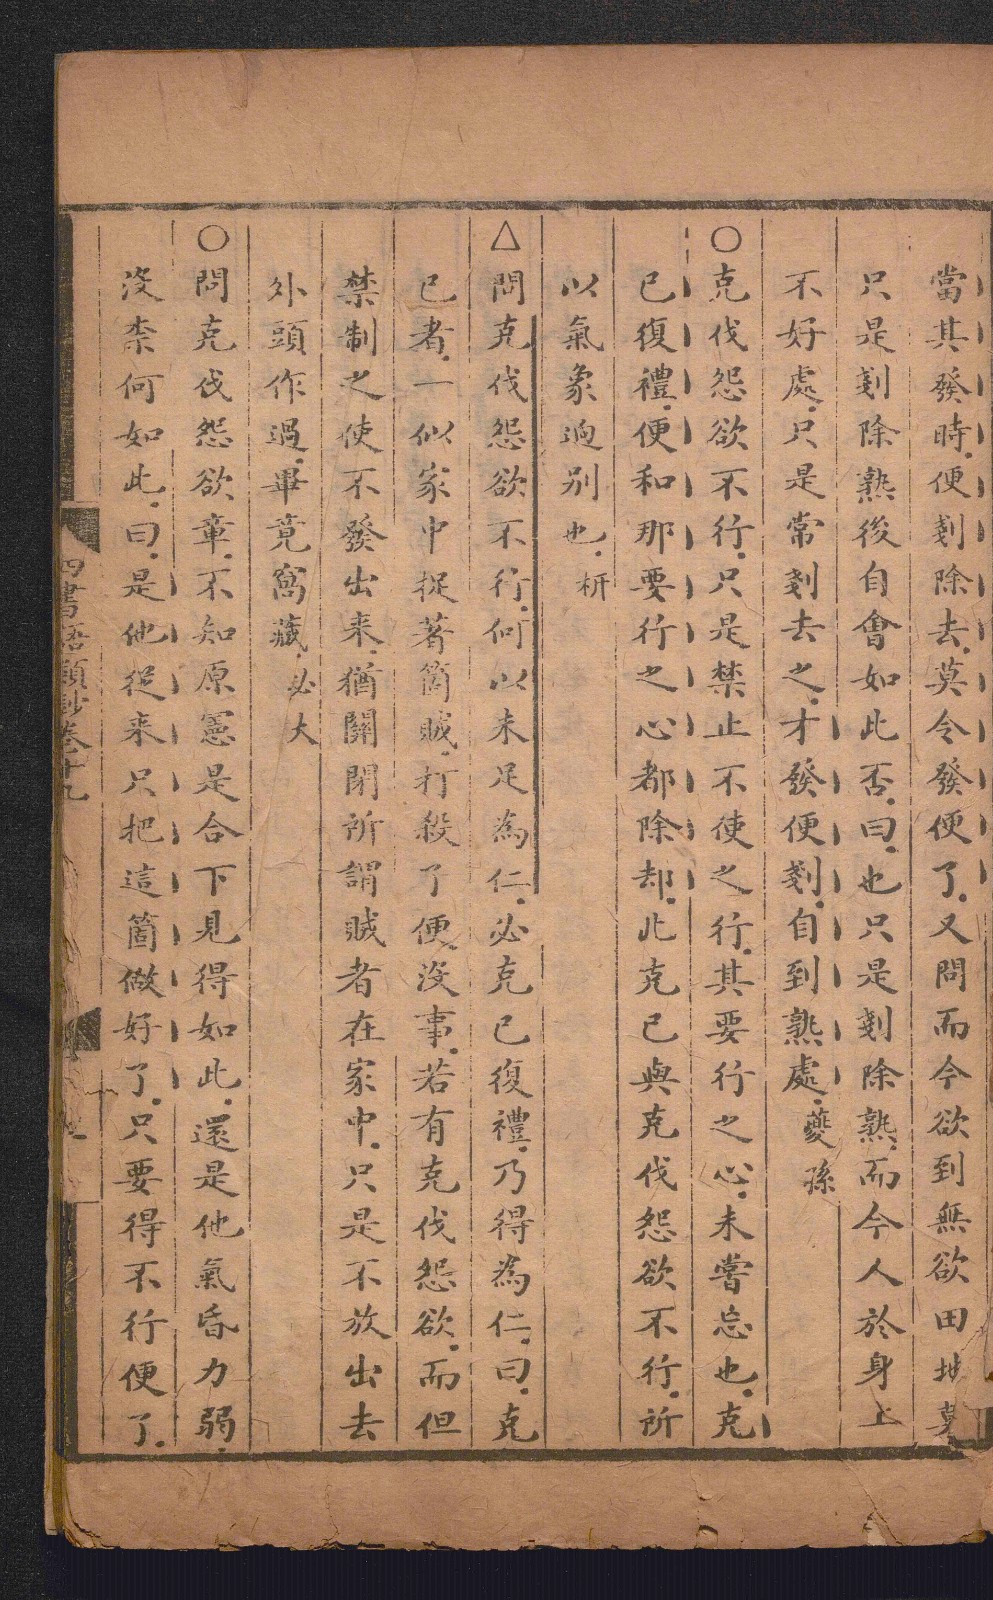 當其發時便剗除去莫令發便了又問而今欲到無欲田地莫
只是剗除熟後自會如此否曰也只是剗除熟而今人於身上
不好處只是常剗去之才發便剗自到熟處夔孫
○克伐怨欲不行只是禁止不使之行其要行之心未嘗忘也克
己復禮便和那要行之心都除却此克己與克伐怨欲不行所
以氣象迥别也枅
△問克伐怨欲不行何以未足為仁必克己復禮乃得為仁曰克
己者一似家中捉著箇賊打殺了便沒事若有克伐怨欲而但
禁制之使不發出来猶關閉所謂賊者在家中只是不放出去
外頭作過畢竟窩藏必大
○問克伐怨欲章不知原憲是合下見得如此還是他氣昏力弱
沒柰何如此曰是他從来只把這箇做好了只要得不行便了
四書語類鈔卷十九